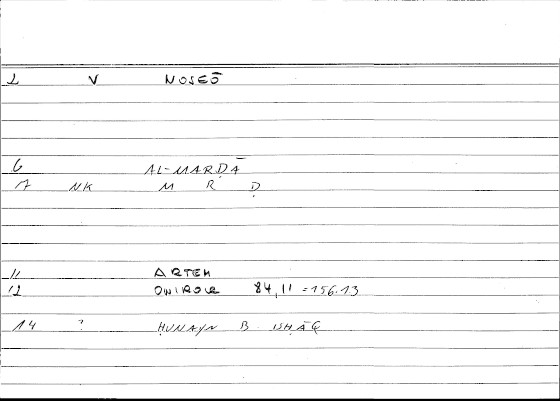 2 V NOSEŌ
6 AL-MARḌĀ
7 NK M R Ḍ
11 ARTEM
12 ONIROCR 84,11 = 156.13
14 ? ḤUNAYN B ISḤĀQ